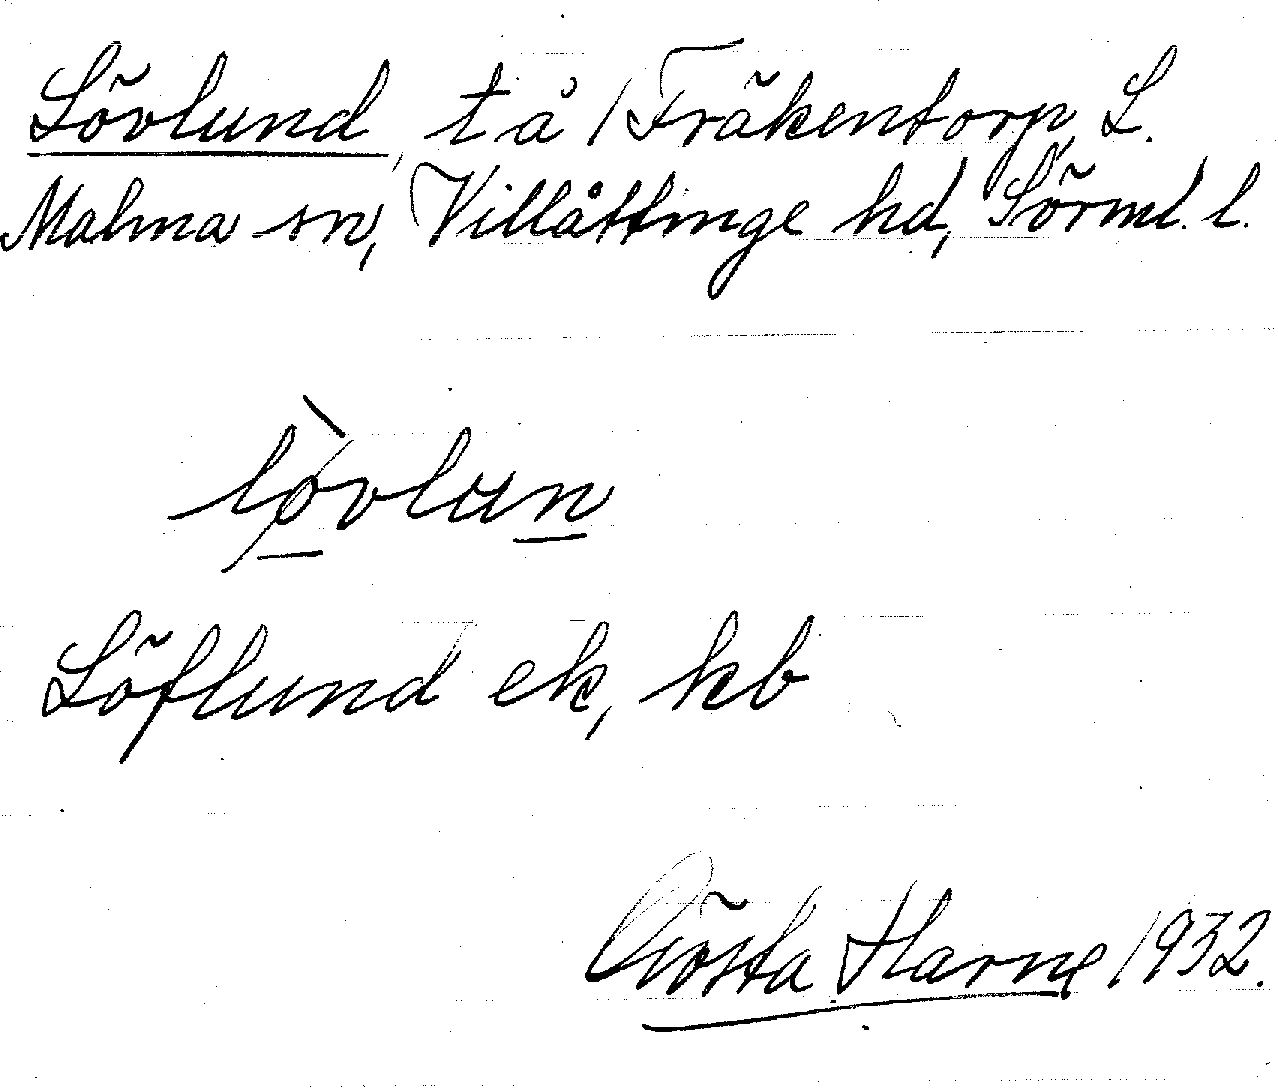 Lövlund, t å / Fräkentorp, L.
Malma sn, Villåttinge hd, Sörml. l.
lø̀vlun
Löflund ek, kb
Gösta Harne 1932.